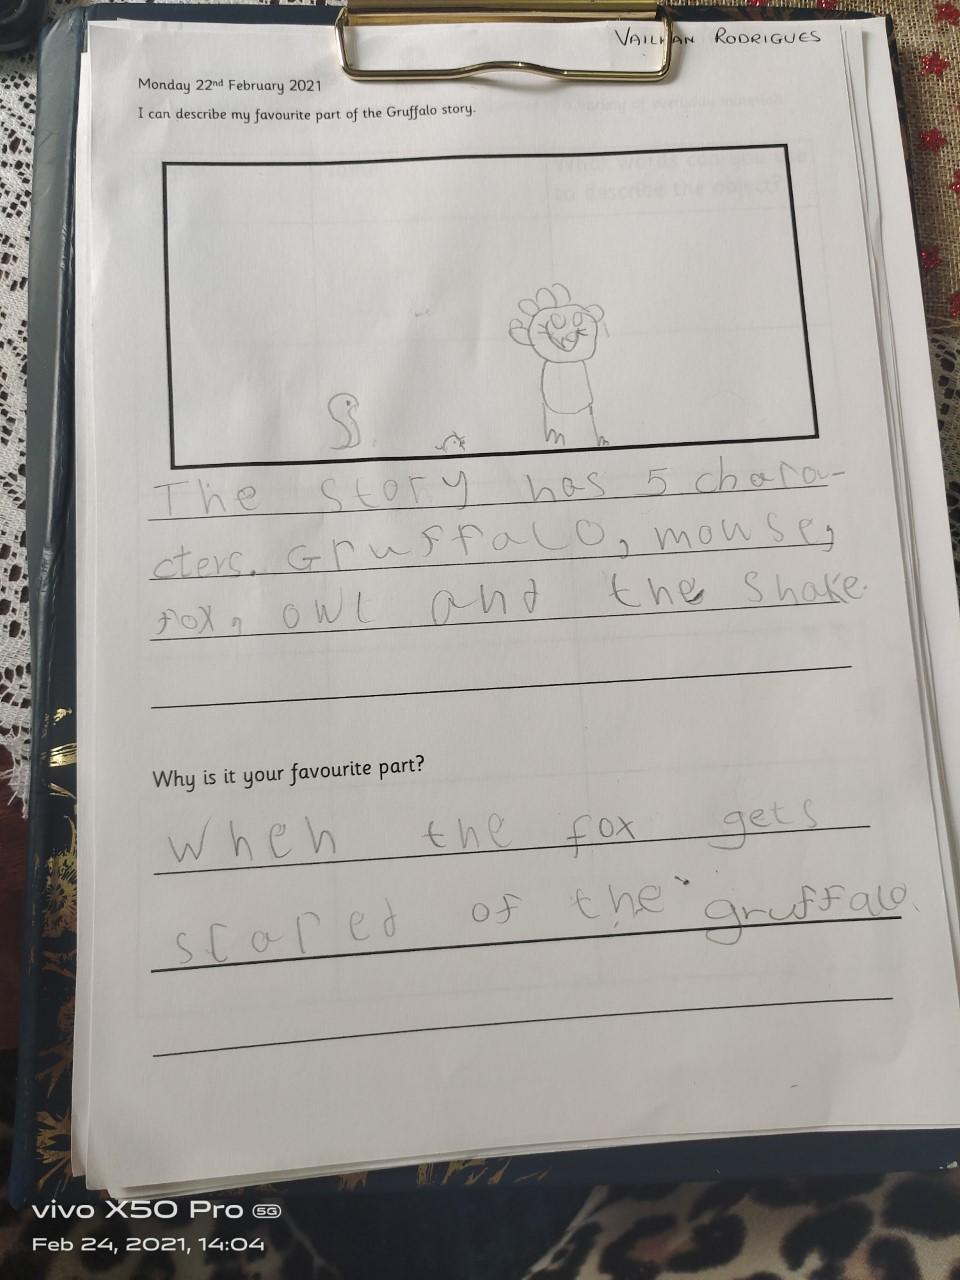 VAILHAN RODRIGUES
Monday 22nd February 2021
I can describe my favourite part of the Gruffalo story.
The story has 5 chara-
cters. Gruffalo, mouse,
fox, owl and the snake.
Why is it your favourite part?
When the fox gets
scared of the gruffalo.
vivo X50 Pro 5G
Feb 24, 2021, 14:04